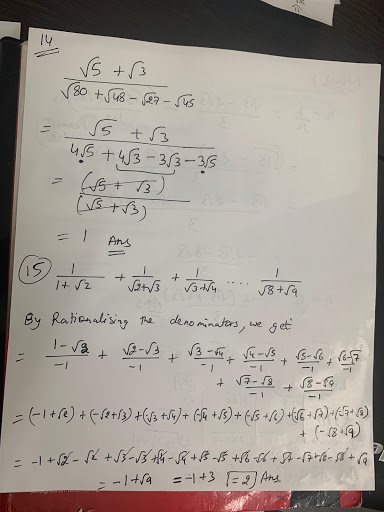 14
√5 + √3
√80 + √48 - √27 - √45
= √5 + √3
4√5 + 4√3 - 3√3 - 3√5
= (√5 + √3)
(√5 + √3)
= 1 Ans
15 1/(1+√2) + 1/(√2+√3) + 1/(√3+√4) .... 1/(√8+√9)
By Rationalising the denominators, we get
= (1-√2)/-1 + (√2-√3)/-1 + (√3-√4)/-1 + (√4-√5)/-1 + (√5-√6)/-1 + (√6-√7)/-1
+ (√7-√8)/-1 + (√8-√9)/-1
= (-1+√2) + (-√2+√3) + (-√3+√4) + (-√4+√5) + (-√5+√6) + (-√6+√7) + (-√7+√8)
+ (-√8+√9)
= -1+√2-√2+√3-√3+√4-√4+√5-√5+√6-√6+√7-√7+√8-√8+√9
= -1+√9 = -1+3 = 2 Ans